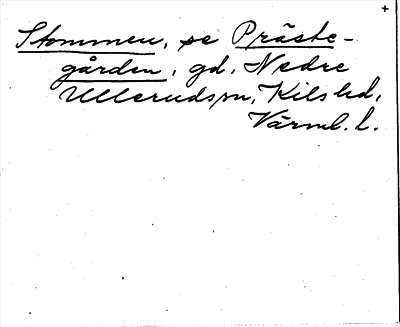 +
Stommen, se Präste-
gården, gd. Nedre
Ullerudspn, Kils hd,
Värml. l.